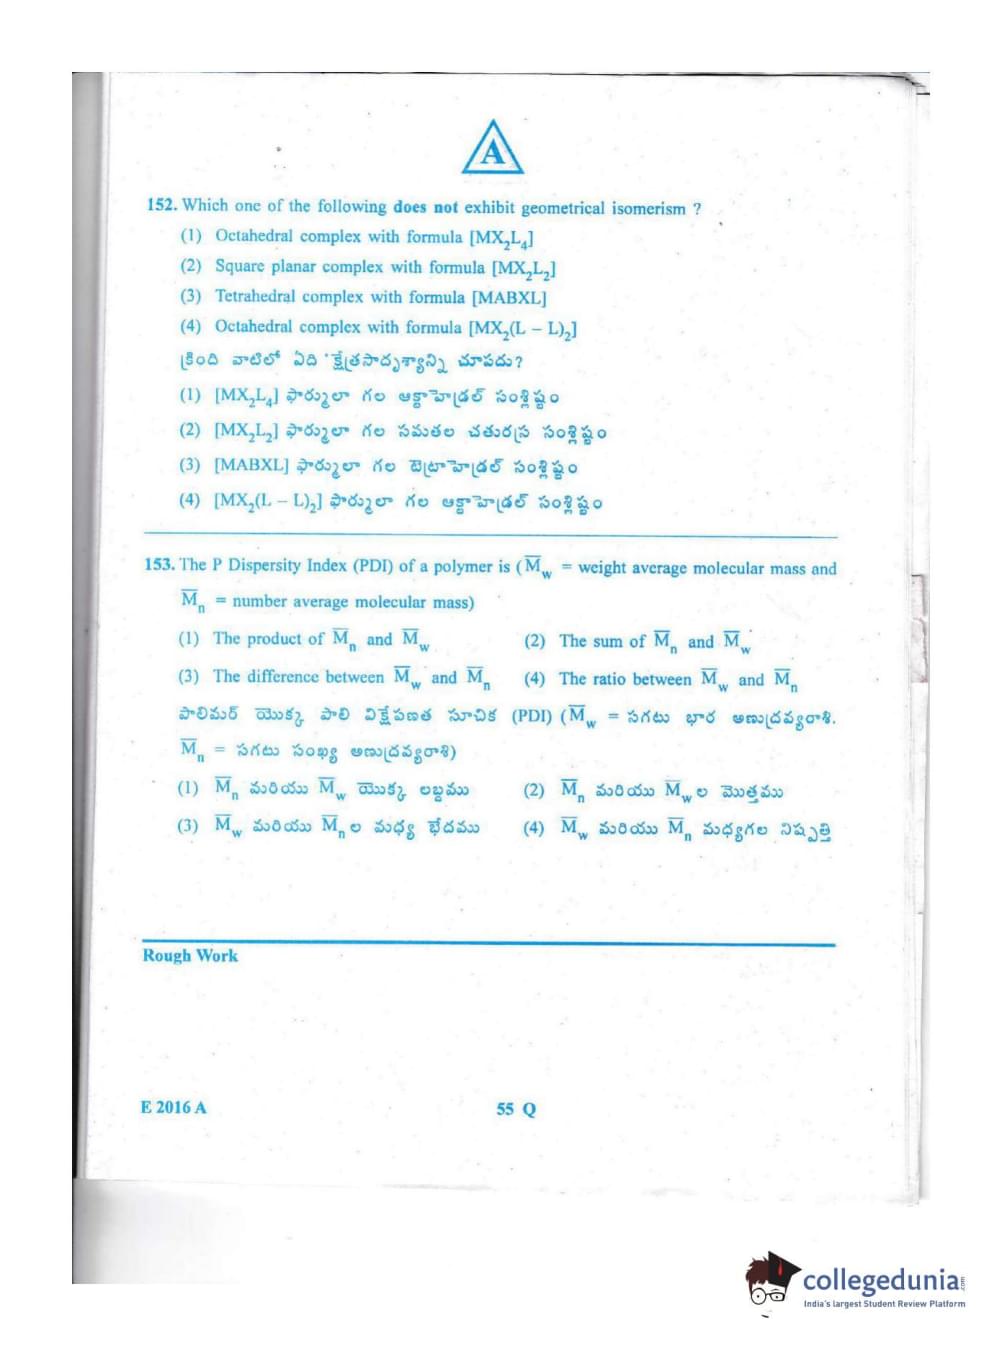 A
152. Which one of the following does not exhibit geometrical isomerism ?
(1) Octahedral complex with formula [MX₂L₄]
(2) Square planar complex with formula [MX₂L₂]
(3) Tetrahedral complex with formula [MABXL]
(4) Octahedral complex with formula [MX₂(L – L)₂]
క్రింది వాటిలో ఏది క్షేత్రసాదృశ్యాన్ని చూపదు?
(1) [MX₂L₄] ఫార్ములా గల ఆక్టాహెడ్రల్ సంశ్లిష్టం
(2) [MX₂L₂] ఫార్ములా గల సమతల చతురస్ర సంశ్లిష్టం
(3) [MABXL] ఫార్ములా గల టెట్రాహెడ్రల్ సంశ్లిష్టం
(4) [MX₂(L – L)₂] ఫార్ములా గల ఆక్టాహెడ్రల్ సంశ్లిష్టం
153. The P Dispersity Index (PDI) of a polymer is (M̅w = weight average molecular mass and
M̅n = number average molecular mass)
(1) The product of M̅n and M̅w (2) The sum of M̅n and M̅w
(3) The difference between M̅w and M̅n (4) The ratio between M̅w and M̅n
పాలిమర్ యొక్క పాలి విక్షేపణత సూచిక (PDI) (M̅w = సగటు భార అణుద్రవ్యరాశి.
M̅n = సగటు సంఖ్య అణుద్రవ్యరాశి)
(1) M̅n మరియు M̅w యొక్క లబ్దము (2) M̅n మరియు M̅w ల మొత్తము
(3) M̅w మరియు M̅n ల మధ్య భేదము (4) M̅w మరియు M̅n మధ్యగల నిష్పత్తి
Rough Work
E 2016 A 55 Q
collegedunia.com
India's largest Student Review Platform